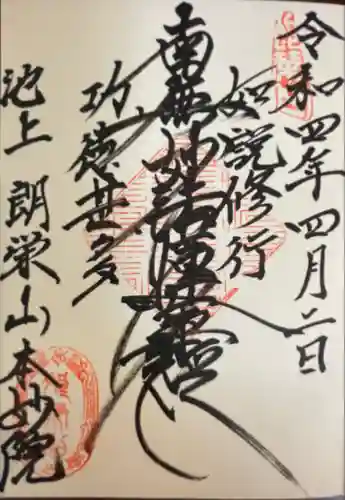 令和四年四月二日
如説修行
南無妙法蓮華経
功徳甚多
池上 朗栄山 本妙院